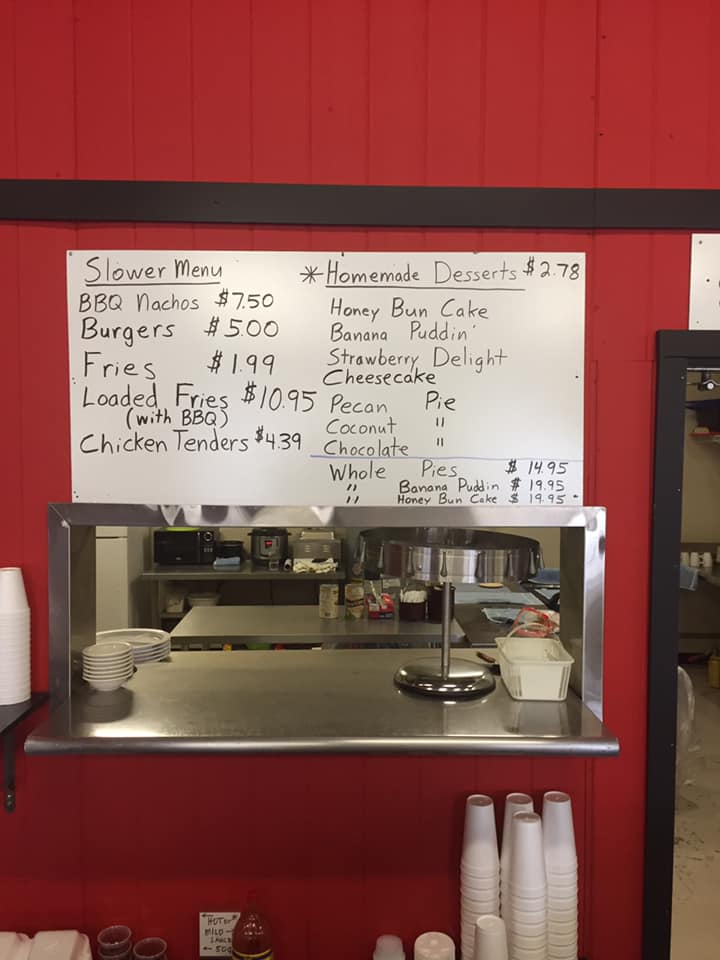 Slower Menu
BBQ Nachos $7.50
Burgers $5.00
Fries $1.99
Loaded Fries $10.95
(with BBQ)
Chicken Tenders $4.39
*Homemade Desserts $2.78
Honey Bun Cake
Banana Puddin'
Strawberry Delight
Cheesecake
Pecan Pie
Coconut "
Chocolate "
Whole Pies $14.95
" Banana Puddin $19.95
" Honey Bun Cake $19.95
HOT
MILD
SAUCE